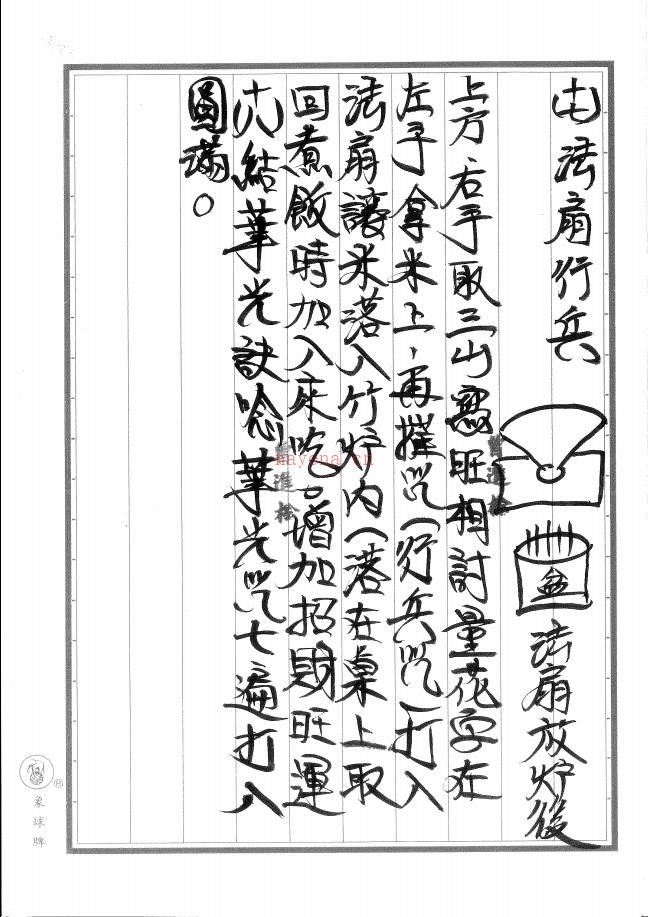 十七法扇行兵 盆 法扇放炉後
上方右手取三山寫旺相討量花字在
左手拿米上,再摧咒(行兵咒)打入
法扇讓米落入竹炉內(落在桌上取
回煮飯時加入來吃。增加招財旺運
十八結華光訣唸華光咒七遍打入
圓满。
hayona.cn
象球牌